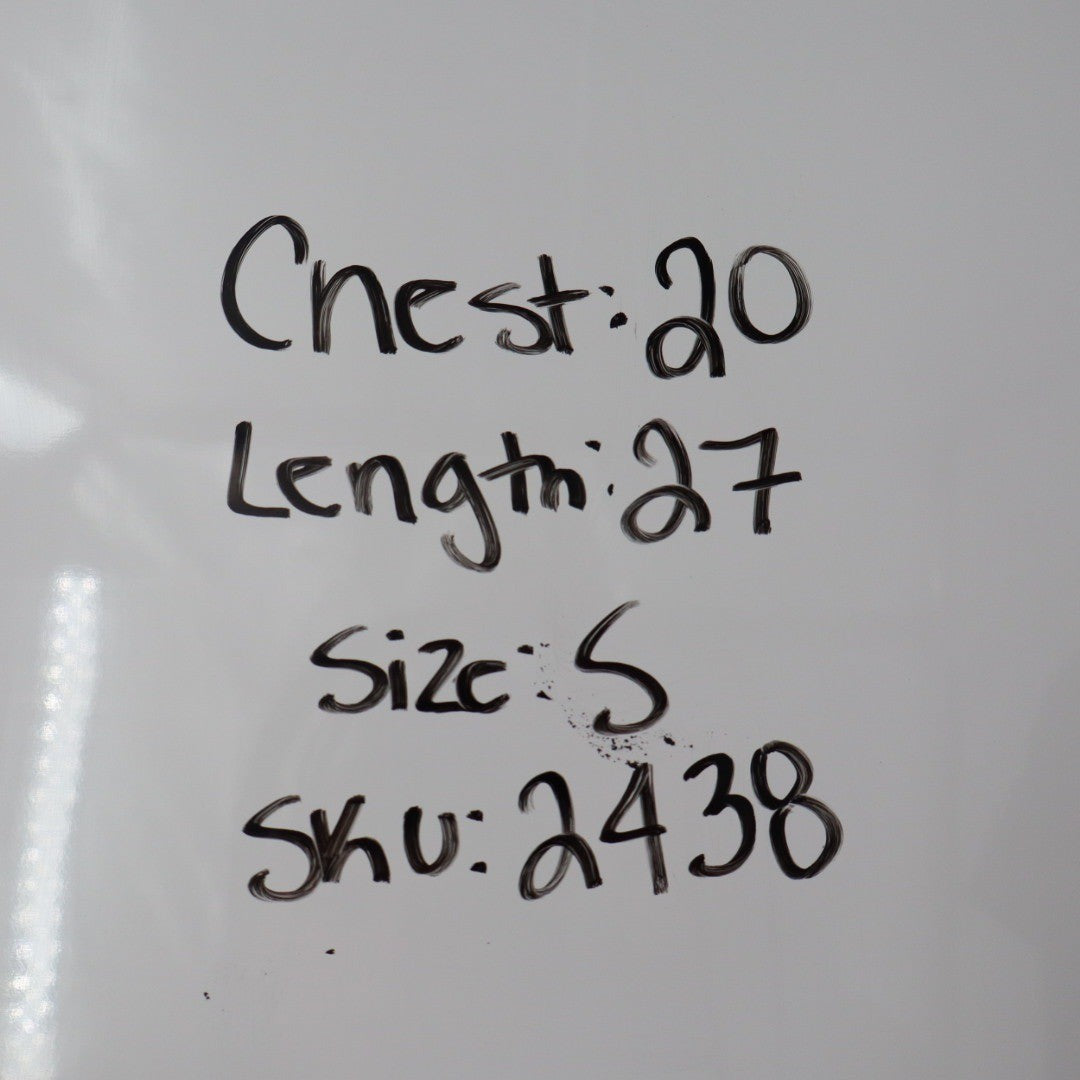 Chest: 20
Length: 27
Size: S
SKU: 2438